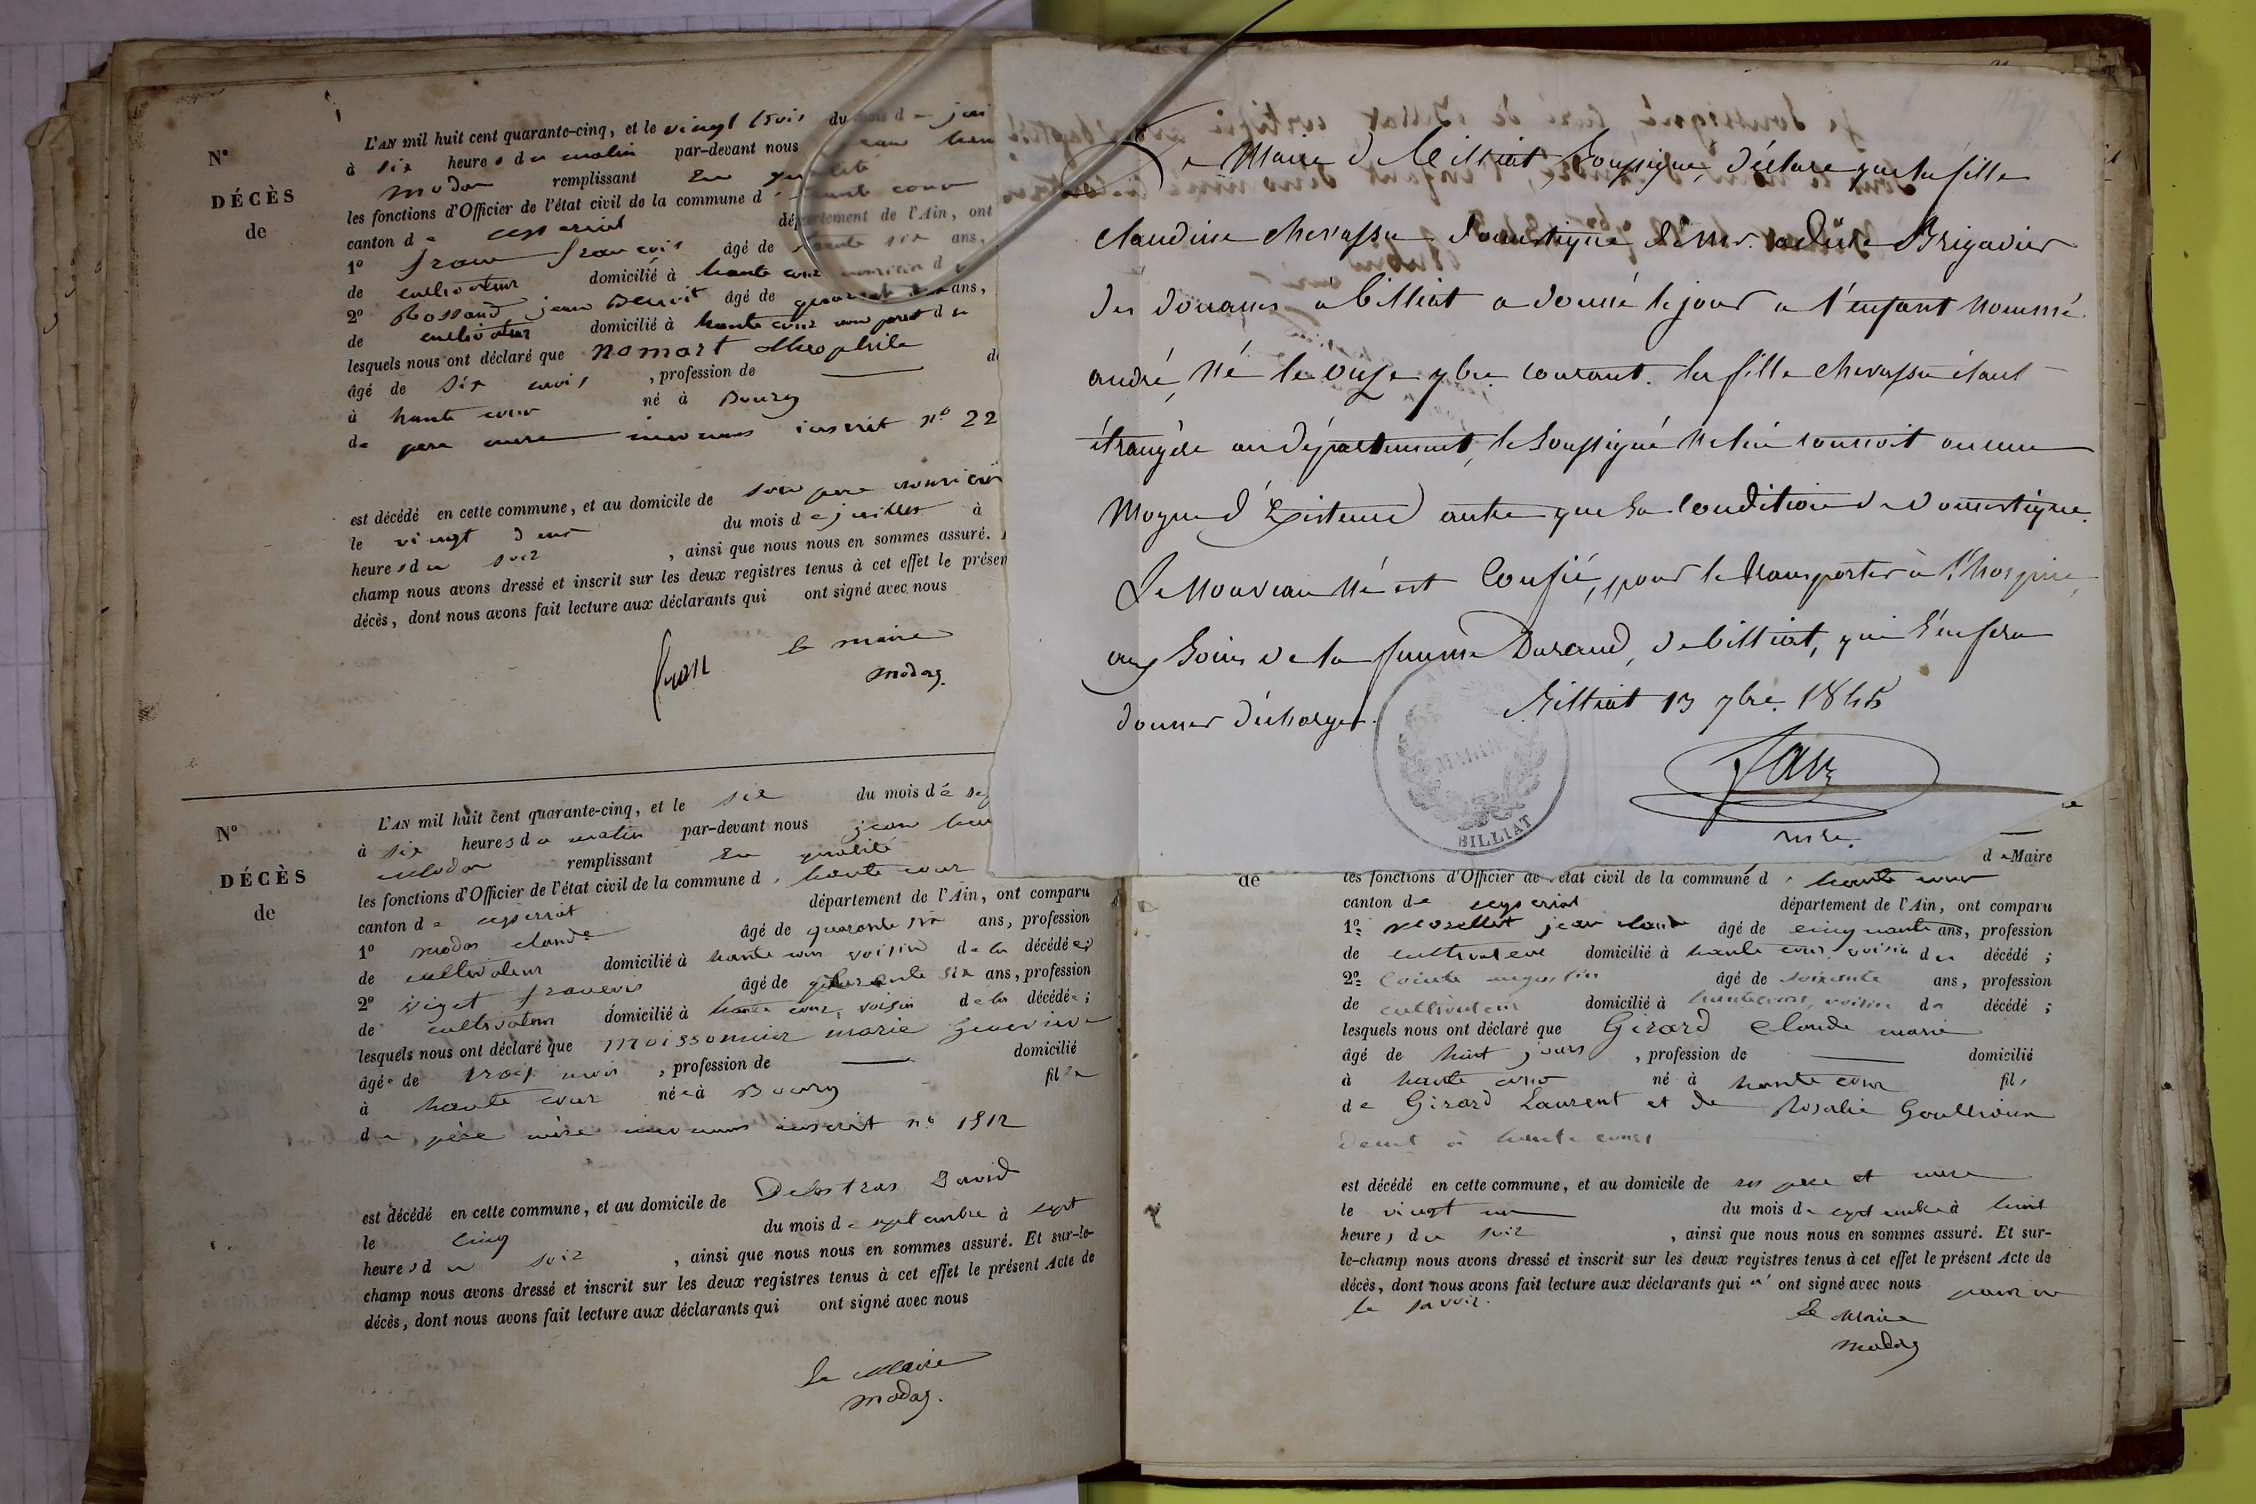 N°
DÉCÈS
de
L'AN mil huit cent quarante-cinq, et le vingt trois du mois d
à six heures du matin par-devant nous
modas remplissant en qualité
les fonctions d'Officier de l'état civil de la commune d haute cour
canton de ceyseriat département de l'Ain, ont
1° fran francois âgé de six ans,
de cultivateur domicilié à haute cour
2° Rossand jean Benoit âgé de ans,
de cultivateur domicilié à haute cour non parent du
lesquels nous ont déclaré que nomart theophile
âgé de six mois , profession de
à haute cour né à Bourg
de pere mere inconnus inscrit n° 22
est décédé en cette commune, et au domicile de son pere nourricier
le vingt deux du mois de juillet à
heures du soir , ainsi que nous nous en sommes assuré.
champ nous avons dressé et inscrit sur les deux registres tenus à cet effet le présen
décès, dont nous avons fait lecture aux déclarants qui ont signé avec nous
fran
le maire
modas.
N°
DÉCÈS
de
L'AN mil huit cent quarante-cinq, et le six du mois de
à six heures du matin par-devant nous jean
modas remplissant en qualité
les fonctions d'Officier de l'état civil de la commune d haute cour
canton de ceyseriat département de l'Ain, ont comparu
1° modas claude âgé de quarante six ans, profession
de cultivateur domicilié à haute cour voisin de la décédée;
2° Viget francois âgé de quarante six ans, profession
de cultivateur domicilié à haute cour, voisin de la décédée;
lesquels nous ont déclaré que moissonnier marie genevieve
âgée de trois mois , profession de domicilié
à haute cour née à Bourg fille
de père mère inconnus inscrit n° 1912
est décédé en cette commune, et au domicile de Delostras David
le cinq du mois de septembre à sept
heures du soir , ainsi que nous nous en sommes assuré. Et sur-le-
champ nous avons dressé et inscrit sur les deux registres tenus à cet effet le présent Acte de
décès, dont nous avons fait lecture aux déclarants qui ont signé avec nous
Le Maire
modas.
Le Maire de Billiat, Soussigné, déclare que la fille
claudine chevassu domestique de mr. Brigadier
des douanes a billiat a donné le jour a l'enfant nommé
andré, né le onze 7bre. courant. la fille chevassu étant
étrangère au département, le Soussigné ne lui connoit aucun
moyen d'Existence autre que Sa Condition de domestique.
Le nouveau né est Confié, pour le transporter à l'hospice,
aux Soins de la femme Durand, de billiat, qui S'en fera
donner décharge.
Billiat 13 7bre. 1845
MAIRIE
BILLIAT
mre.
d e Maire
de
les fonctions d'Officier de l'état civil de la commune d haute cour
canton de ceyseriat département de l'Ain, ont comparu
1° jean claude âgé de cinquante ans, profession
de cultivateur domicilié à haute cour voisin du décédé ;
2° Cointe augustin âgé de soixante ans, profession
de cultivateur domicilié à hautecour, voisin du décédé ;
lesquels nous ont déclaré que Girard Claude marie
âgé de huit jours , profession de domicilié
à haute cour né à haute cour fils
de Girard Laurent et de Rosalie
demt à haute cour
est décédé en cette commune, et au domicile de ses pere et mere
le vingt un du mois de septembre à huit
heures du soir , ainsi que nous nous en sommes assuré. Et sur-
le-champ nous avons dressé et inscrit sur les deux registres tenus à cet effet le présent Acte de
décès, dont nous avons fait lecture aux déclarants qui n' ont signé avec nous pour ne
le savoir.
Le Maire
modas